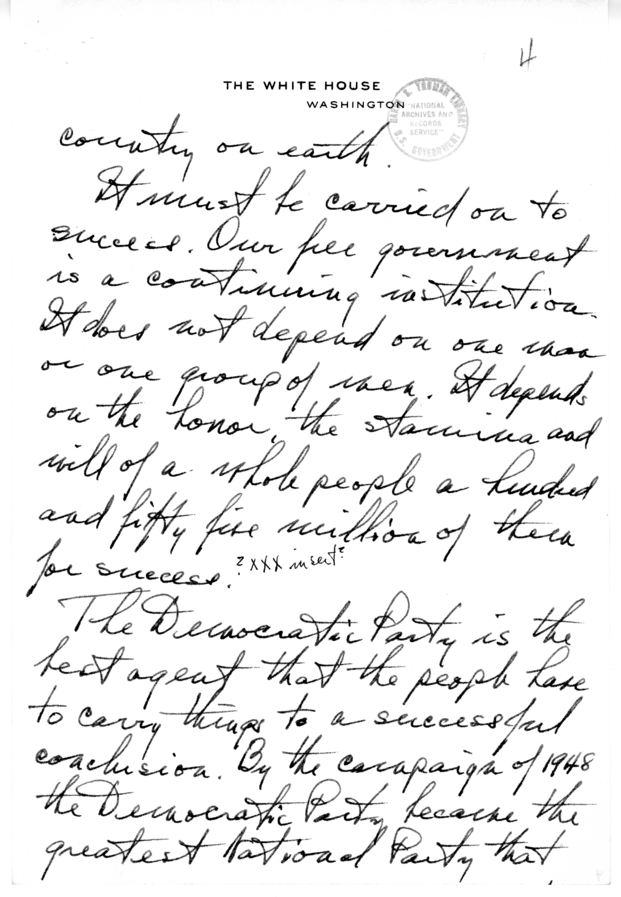 4
THE WHITE HOUSE
WASHINGTON
HARRY S. TRUMAN LIBRARY
NATIONAL
ARCHIVES AND
RECORDS
SERVICE
U.S. GOVERNMENT
country on earth.
It must be carried on to
success. Our free government
is a continuing institution.
It does not depend on one man
or one group of men. It depends
on the honor, the stamina and
will of a whole people a hundred
and fifty five million of them
for success. ? XXX insert?
The Democratic Party is the
best agent that the people have
to carry things to a successful
conclusion. By the campaign of 1948
the Democratic Party became the
greatest National Party that